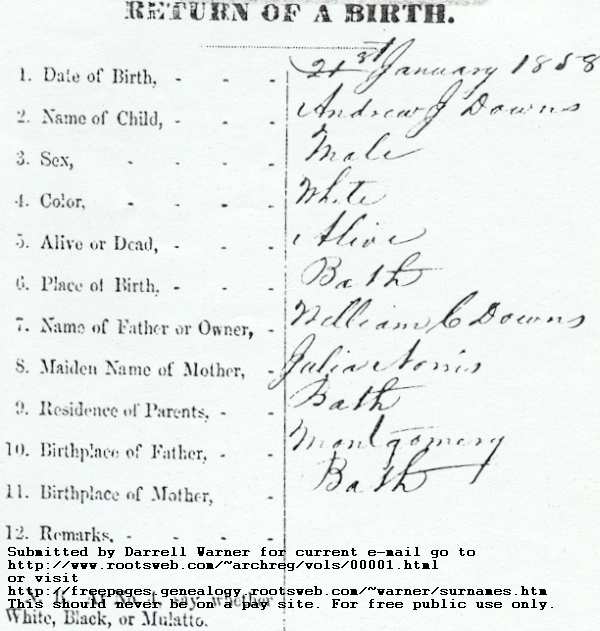 RETURN OF A BIRTH.
1. Date of Birth, - - - 21st January 1858
2. Name of Child, - - - Andrew J Downs
3. Sex, - - - - Male
4. Color, - - - - White
5. Alive or Dead, - - - Alive
6. Place of Birth, - - - Bath
7. Name of Father or Owner, - William C Downs
8. Maiden Name of Mother, - Julia Norris
9. Residence of Parents, - - Bath
10. Birthplace of Father, - - Montgomery
11. Birthplace of Mother, - Bath
12. Remarks, - - - -
Submitted by Darrell Warner for current e-mail go to
http://www.rootsweb.com/~archreg/vols/00001.html
or visit
http://freepages.genealogy.rootsweb.com/~warner/surnames.htm
say whether
This should never be on a pay site. For free public use only.
White, Black, or Mulatto.